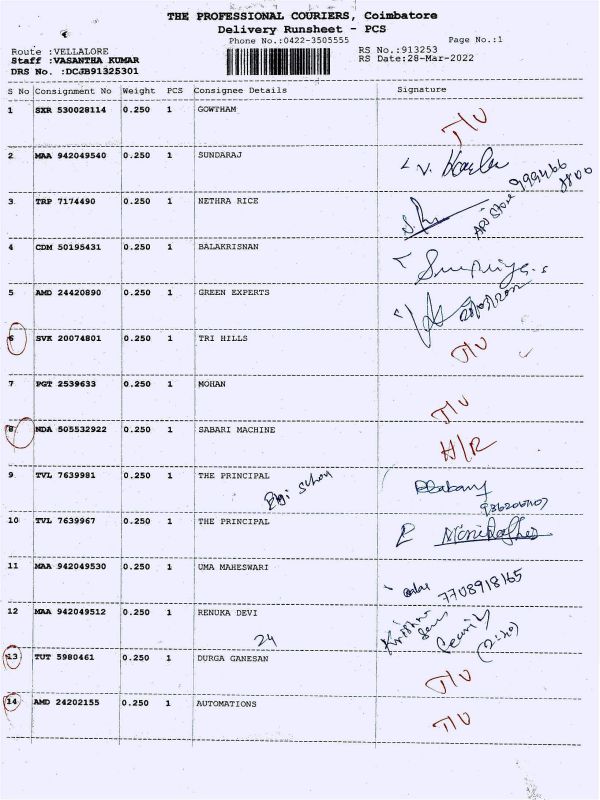 THE PROFESSIONAL COURIERS, Coimbatore
Delivery Runsheet - PCS
Phone No.:0422-3505555 Page No.:1
Route :VELLALORE RS No.:913253
Staff :VASANTHA KUMAR RS Date:28-Mar-2022
DRS No. :DCJB91325301
S No Consignment No Weight PCS Consignee Details Signature
1 SXR 530028114 0.250 1 GOWTHAM
T/U
2 MAA 942049540 0.250 1 SUNDARAJ
3 TRP 7174490 0.250 1 NETHRA RICE
4 CDM 50195431 0.250 1 BALAKRISNAN
5 AMD 24420890 0.250 1 GREEN EXPERTS
6 SVK 20074801 0.250 1 TRI HILLS
T/U
7 PGT 2539633 0.250 1 MOHAN
T/U
8 NDA 505532922 0.250 1 SABARI MACHINE
H/R
9 TVL 7639981 0.250 1 THE PRINCIPAL
10 TVL 7639967 0.250 1 THE PRINCIPAL
11 MAA 942049530 0.250 1 UMA MAHESWARI
7708918165
12 MAA 942049512 0.250 1 RENUKA DEVI
24
13 TUT 5980461 0.250 1 DURGA GANESAN
T/U
14 AMD 24202155 0.250 1 AUTOMATIONS
T/U